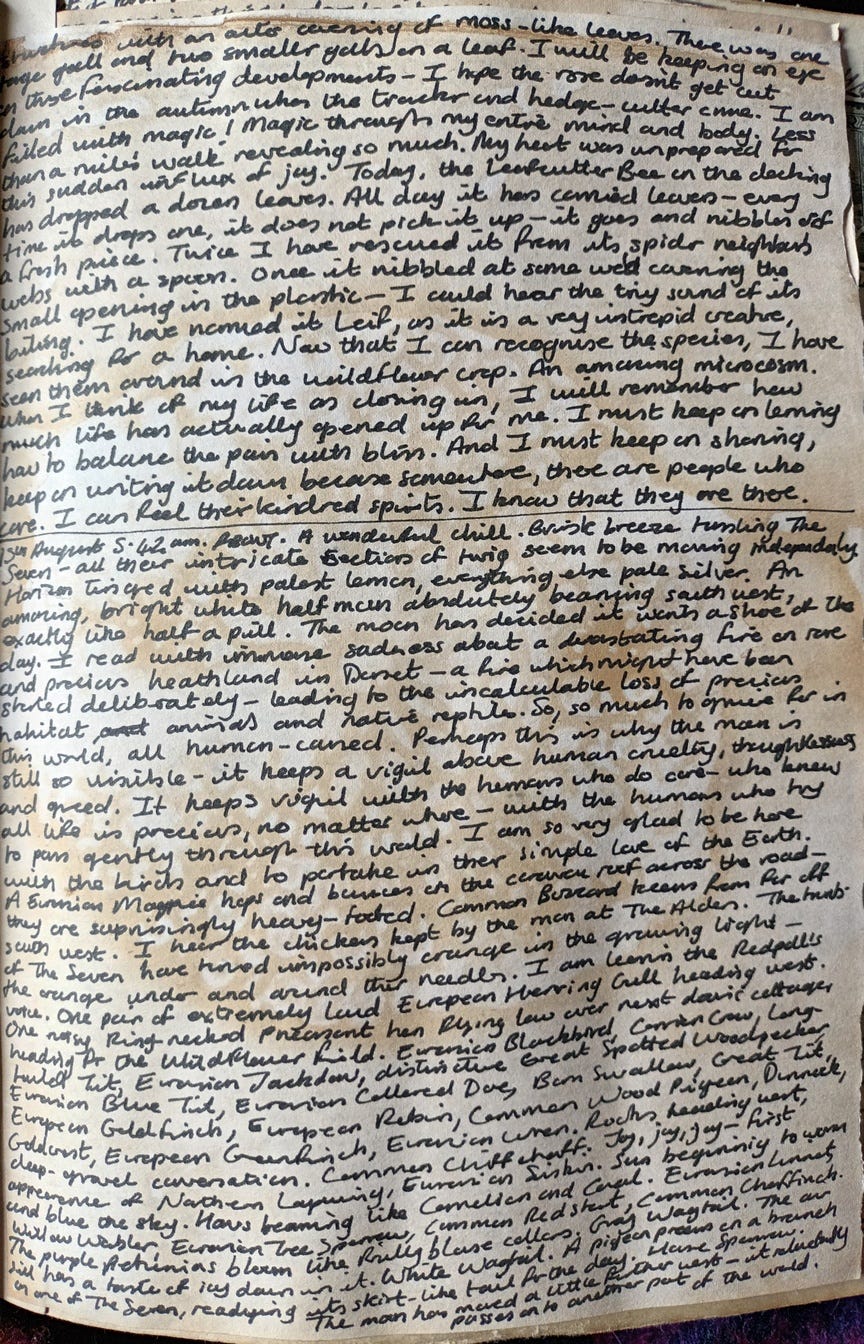 structures with an outer covering of moss-like leaves. There was one
large gall and two smaller galls on a leaf. I will be keeping an eye
on these fascinating developments – I hope the rose doesn't get cut
down in the autumn when the tractor and hedge-cutter come. I am
filled with magic! Magic through my entire mind and body. Less
than a mile's walk revealing so much. My heart was unprepared for
this sudden influx of joy. Today, the Leafcutter Bee on the decking
has dropped a dozen leaves. All day it has carried leaves – every
time it drops one, it does not pick it up – it goes and nibbles off
a fresh piece. Twice I have rescued it from its spider neighbours
webs with a spoon. Once it nibbled at some weed covering the
small opening in the plastic – I could hear the tiny sound of its
biting. I have named it Leif, as it is a very intrepid creature,
searching for a home. Now that I can recognise the species, I have
seen them around in the wildflower crop. An amazing microcosm.
When I think of my life as closing in, I will remember how
much life has actually opened up for me. I must keep on learning
how to balance the pain with bliss. And I must keep on sharing,
keep on writing it down because somewhere, there are people who
care. I can feel their kindred spirits. I know that they are there.
15th August 5.42 am. A wonderful chill. Brisk breeze tussling The
Seven – all their intricate sections of twig seem to be moving independently
Horizon tinged with palest lemon, everything else pale silver. An
amazing, bright white half moon absolutely beaming south west,
exactly like half a pill. The moon has decided it wants a shoe of the
day. I read with immense sadness about a devastating fire on rare
and precious heathland in Dorset – a fire which might have been
started deliberately – leading to the incalculable loss of precious
habitat and animals and native reptiles. So, so much to grieve for in
this world, all human-caused. Perhaps this is why the moon is
still so visible – it keeps a vigil above human cruelty, thoughtlessness
and greed. It keeps vigil with the humans who do care – who know
all life is precious, no matter where – with the humans who try
to pass gently through this world. I am so very glad to be here
with the birds and to partake in their simple love of the Earth.
A Eurasian Magpie hops and bounces on the caravan roof across the road –
they are surprisingly heavy-footed. Common Buzzard keens from far off
south west. I hear the chickens kept by the man at The Alders. The trunks
of The Seven have turned impossibly orange in the growing light –
the orange under and around their needles. I am learnin the Redpoll's
voice. One pair of extremely loud European Herring Gull heading west.
One noisy Ring-necked Pheasant hen flying low over next door's cottage
heading for the Wildflower Field. Eurasian Blackbird, Carrion Crow, Long-
tailed Tit, Eurasian Jackdaw, distinctive Great Spotted Woodpecker
Eurasian Blue Tit, Eurasian Collared Dove, Barn Swallow, Great Tit,
European Goldfinch, European Robin, Common Wood Pigeon, Dunnock,
Goldcrest, European Greenfinch, Eurasian Wren. Rooks heading west,
deep-gravel conversation. Common Chiffchaff. Joy, joy, joy – first
appearance of Northern Lapwing, Eurasian Siskin. Sun beginning to warm
and blue the sky. Haws beaming like Carnelian and Coral. Eurasian Linnet
Willow Warbler, Eurasian Tree Sparrow, Common Redstart, Common Chaffinch.
The purple Petunias bloom like frilly blouse collars. Gray Wagtail. The air
still has a taste of icy dawn in it. White Wagtail. A pigeon preens on a branch
on one of The Seven, readying its skirt-like tail for the day. House Sparrow.
The moon has moved a little further west – it reluctantly
passes on to another part of the world.